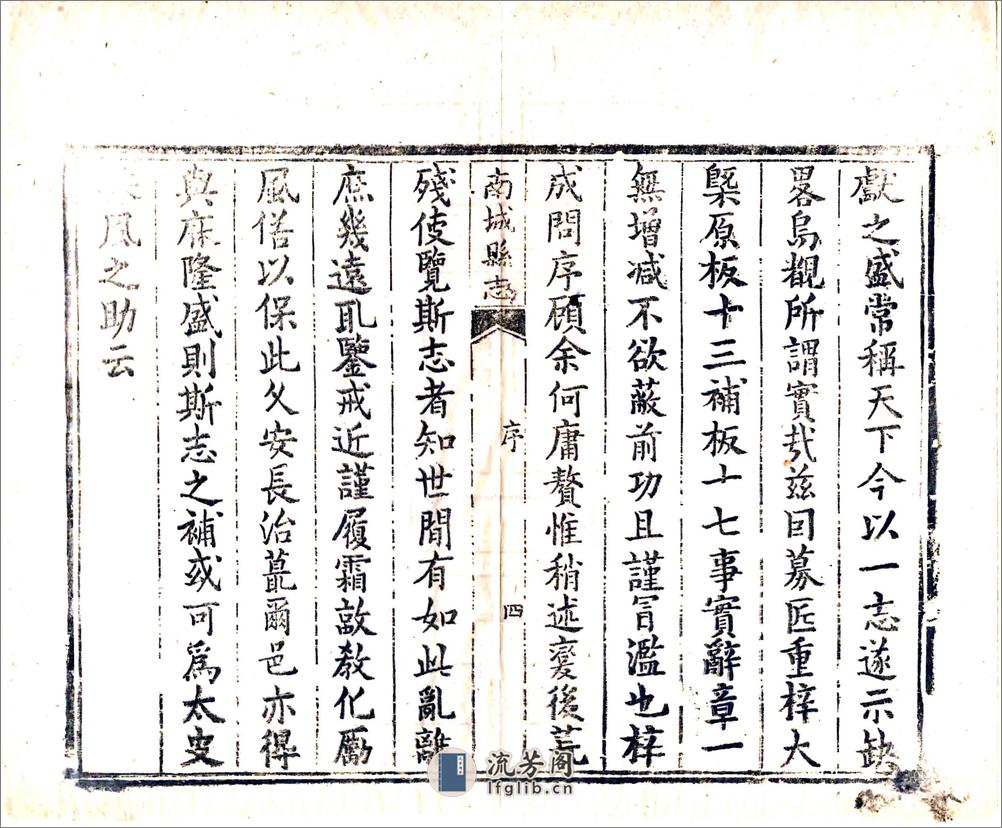 獻之盛常稱天下今以一志遂示缺
畧烏覩所謂實哉茲因募匠重梓大
槩原板十三補板十七事實辭章一
無增减不欲蔽前功且謹冐濫也梓
成問序顧余何庸贅惟稍述寇後荒
南城縣志
序
四
殘使覽斯志者知世間有如此亂離
庶幾遠瓦鑒戒近謹履霜敦教化勵
風俗以保此久安長治蕞爾邑亦得
與庥隆盛則斯志之補或可爲太史
風之助云
流芳阁
lfglib.cn